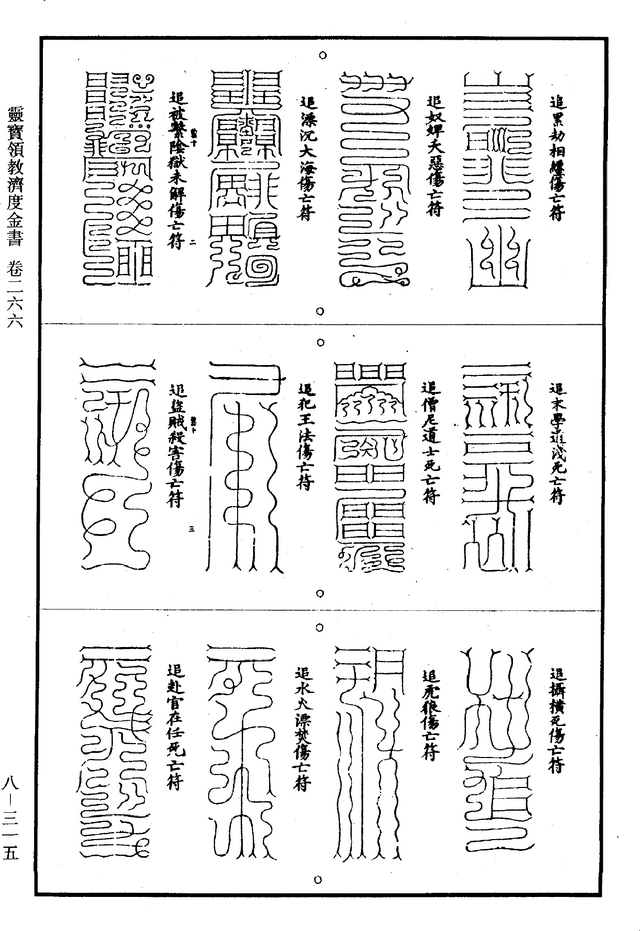 追累劫相纏傷亡符
追奴婢夭惡傷亡符
追漂沉大海傷亡符
追被繫陰獄未解傷亡符
二
追末學道淺死亡符
追僧尼道士死亡符
追犯王法傷亡符
追盜賊殺害傷亡符
三
追攝橫死傷亡符
追虎狼傷亡符
追水火漂焚傷亡符
追赴官在任死亡符
靈寶領教濟度金書 卷二六六
八—三一五